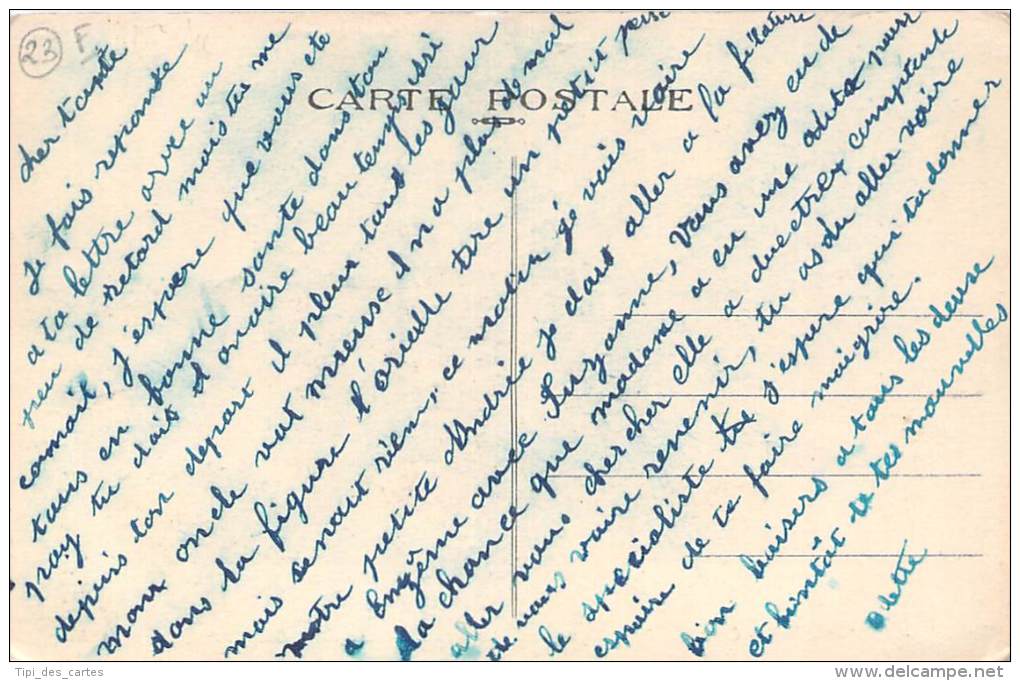 23 F
CARTE POSTALE
cher tante
je fais reponse
a ta lettre avec un
peu de retard mais tu me
connait, j'espère que vous ete
tous en bonne santé dans ton
pay tu doit d'avoire beau temps ici
depuis ton depart il pleux tout les jour
mon oncle vat mieux il n a plus de mal
dans la figure l'orielle tire un petit peu
mais senait rien, ce matin gé vais voire
notre petite Andrée je dois aller a la filature
a Eugène avec Suzanne, vous avez eu de
la chance que madame a eu une auto pour
aller vous chercher elle a due etrex comptente
de vous voire revenir, tu as du aller voire
le specialiste ta j'espere qu'il ta donner
espsière de te faire maigrire.
bien baisers a tous les deuse
et bientôt de tes nouvelles
odette
Tipi_des_cartes
www.delcampe.net